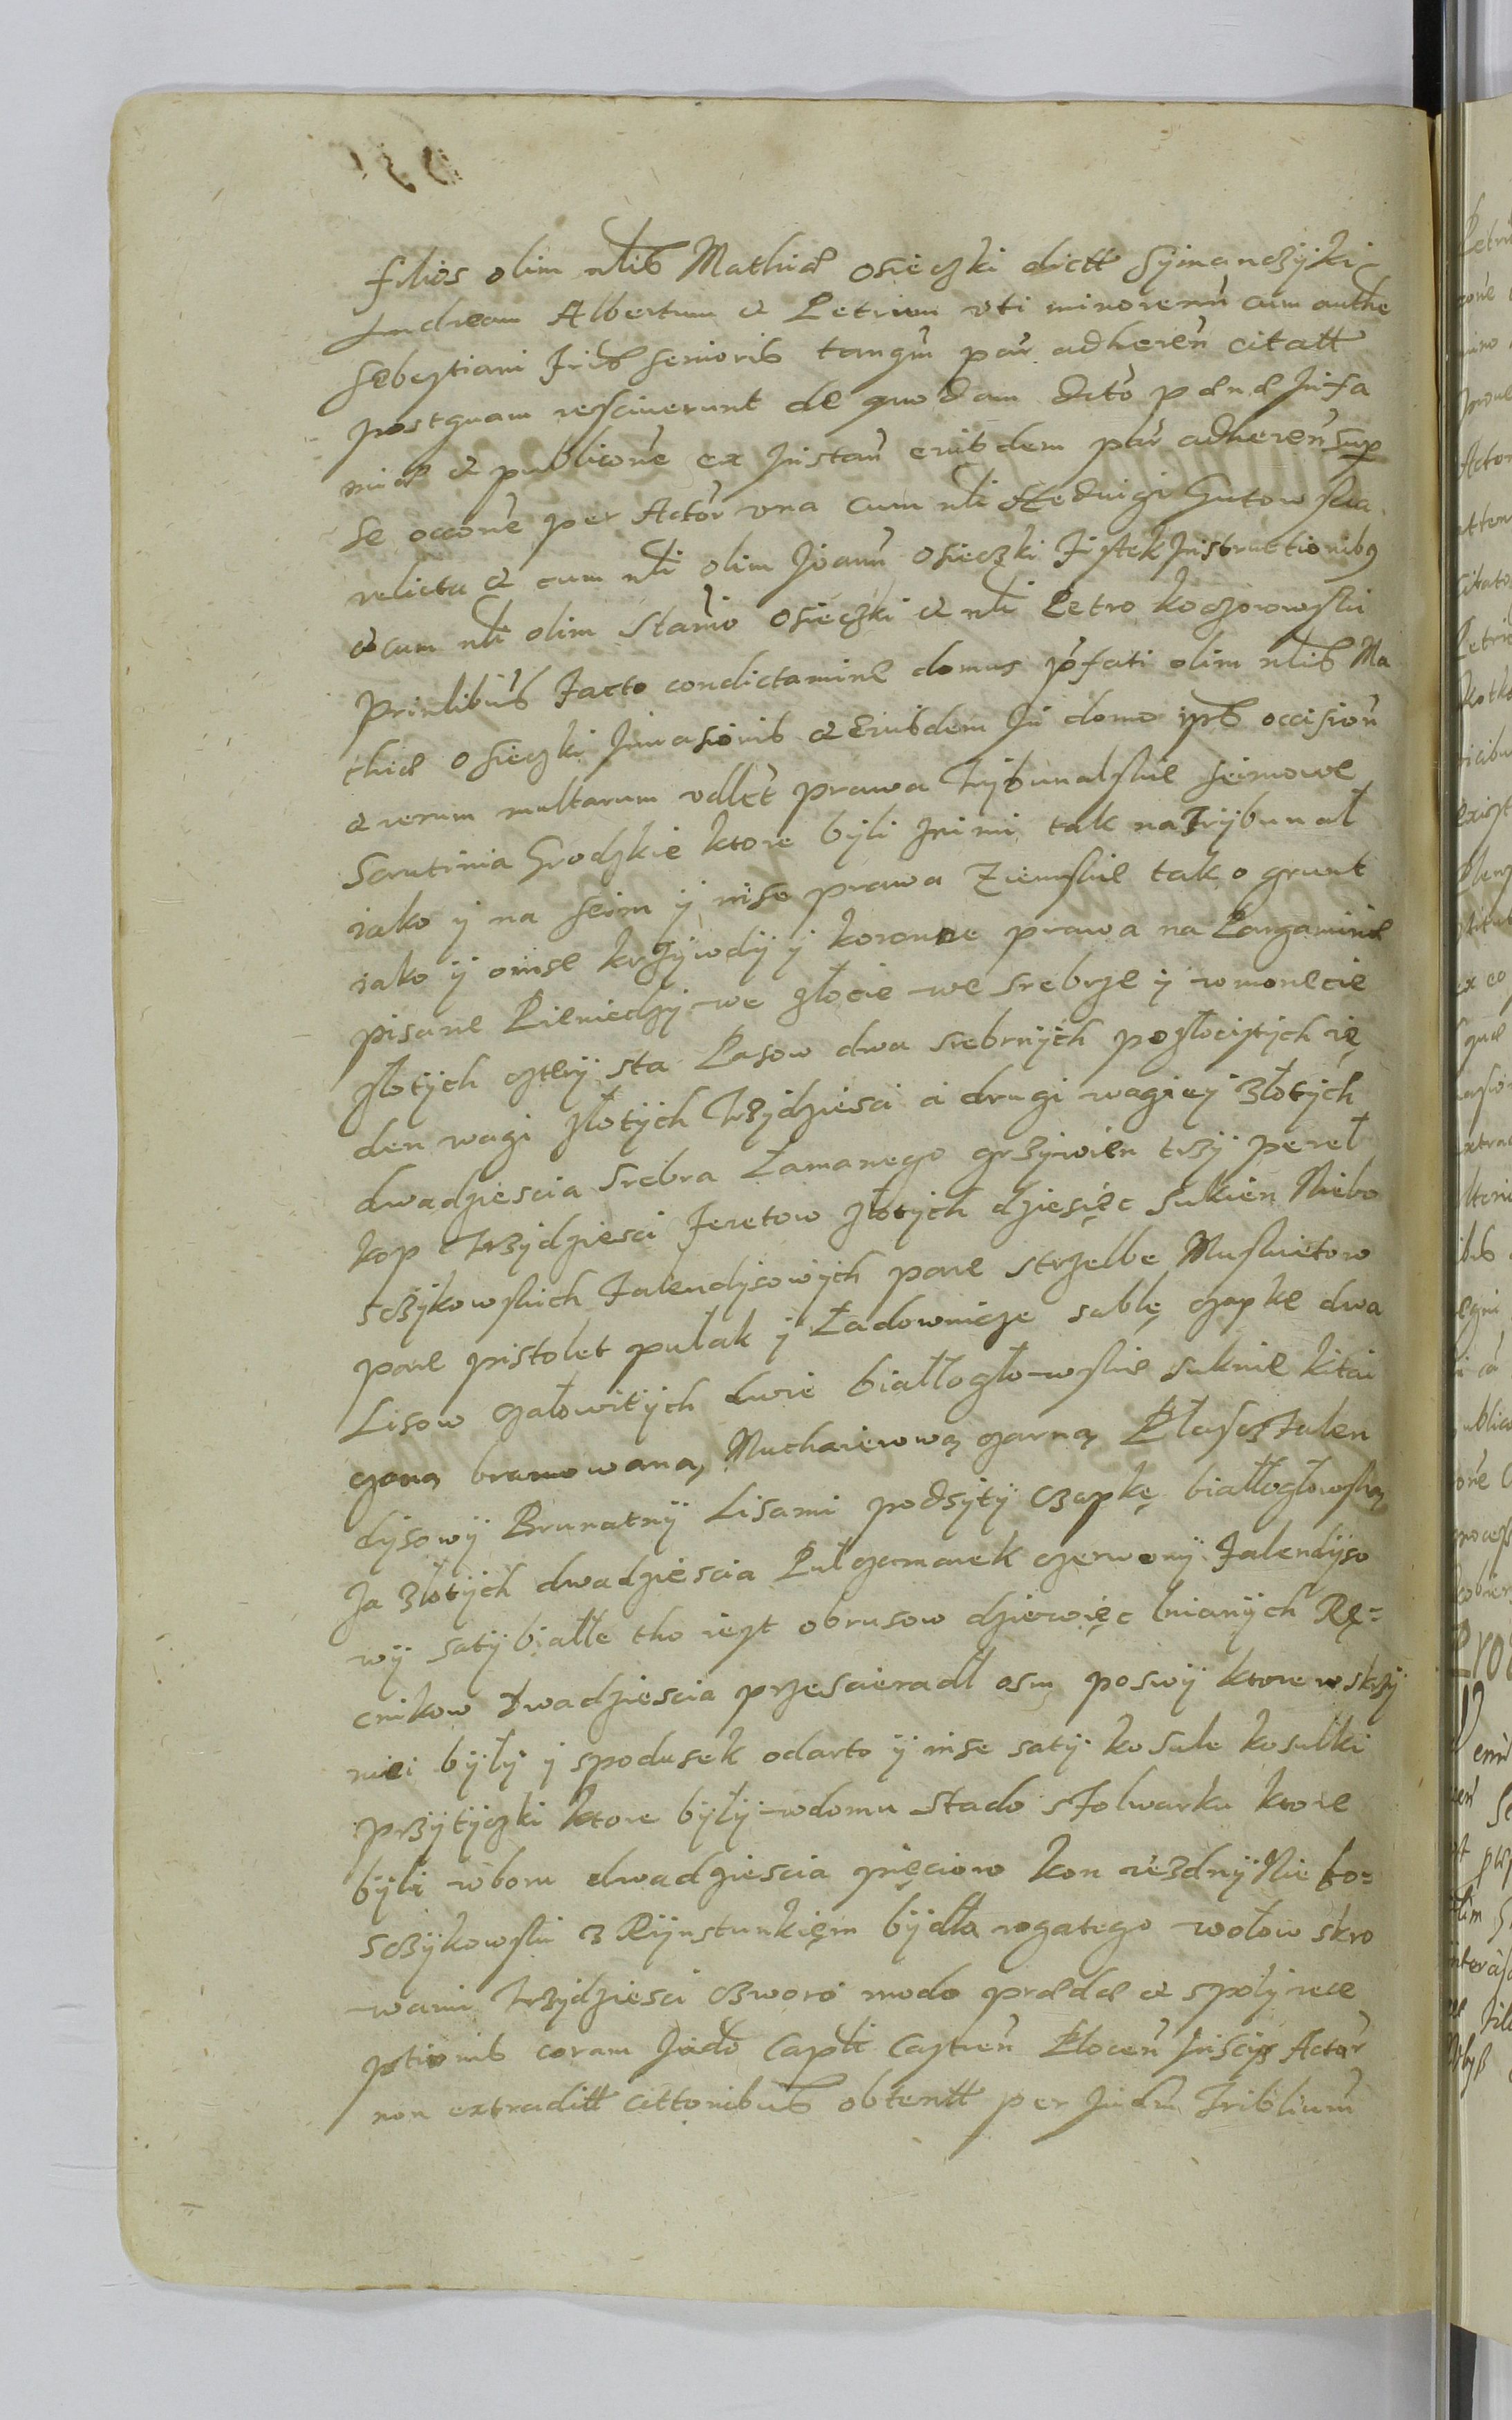 filios olim nlis Mathiæ Osieczki dictt Symanczyki
Andream Albertum & Petrum uti minorenn cum authe
Sebestiani Fris senioris tanqm par adheren citatt
postquam resciverunt de quodam dcto pænæ Infa
miæ & publicone ex Instan eiusdem par adheren sup
se occone per Actor una cum nli Heduigi Gutowska
relicta & cum nli olim Joann Osieczki Fistek Instructionibus
& cum nli olim Stanio Osieczki & nli Petro Koczorowski
Prinlibus facto condictamine domus pfati olim nlis Ma
thiæ Osieczki Invasionis & Eiusdem In domo ipsis occision
& rerum multarum vdlet prawa Trybunalskie seimowe
Scrutinia Grodzkie ktore byli Inimi tak na Trybunał
iako y na seim y inse prawa Ziemskie tak o grunt
iako y o inse krzywdy y koronne prawa na Pargaminie
pisane Pieniedzy we złocie we srebrze y w monecie
złotych cztery sta Pasow dwa srebrnych pozłocistych ie
den wagi złotych Trzydziesci a drugi wagiey złotych
dwadziescia srebra łamanego grzywien trzy pereł
kop Trzydziesci Feretow złotych dziesięc sukien Niebo
sczykowskich Falendysowych pare strzelbe Muskietow
pare pistolet pułak y Ładownicze sablę czapke dwa
Lisow całowitych dwie białłogłowskie suknie kitai
czaną bramowaną Mucharerową czarną Płascz Falen
dysowy Brunatny Lisami podsyty czapkę białłogłowską
za złotych dwadziescia Pułczamarek czerwony Falendyso
wy saty białłe tho iest obrusow dziewięc lnianych Rę=
cnikow dwadziescia przescieradł osm poswy ktore w skrzy
niei były y spodusek odarto y inse saty kosule kosulki
przytyczki ktore były w domu Stado s folwarku ktore
było w boru dwadziescia pięcioro kon iezdny Niebo=
sczykowski z Rynstunkięm bydła rogatego wołow s kro
wami Trzydziesci czworo modo præda & spoly rece
ptionis coram Judo Capli Castren Plocen Inscijs Actor
non extraditt cittonibus obtentt per Judm Triblium